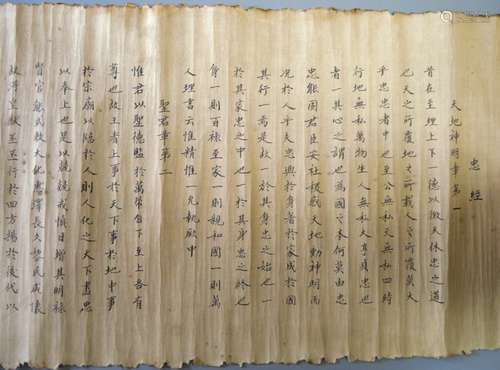 忠經
天地神明章第一
昔在至理上下一德以徵天休忠之道
也天之所覆地之所載人之所履莫大
乎忠忠者中也至公無私天無私四時
行地無私萬物生人無私大亨貞忠也
者一其心之謂也為國之本何莫由忠
忠能固君臣安社稷感天地動神明而
況於人乎夫忠興於身著於家成於國
其行一焉是故一於其身忠之始也一
於其家忠之中也一於其身忠之終也
身一則百祿至家一則親和國一則萬
人理書云惟精惟一允執厥中
聖君章第二
惟君以聖德監於萬邦自下至上各有
尊也故王者上事於天下事於地中事
於宗廟以臨於人則人化之天下盡忠
以奉上也是以兢兢戒慎日增其明祿
賢官能式敷大化惠澤長久萬民咸懷
故得皇猷丕丕行於四方揚於後代以